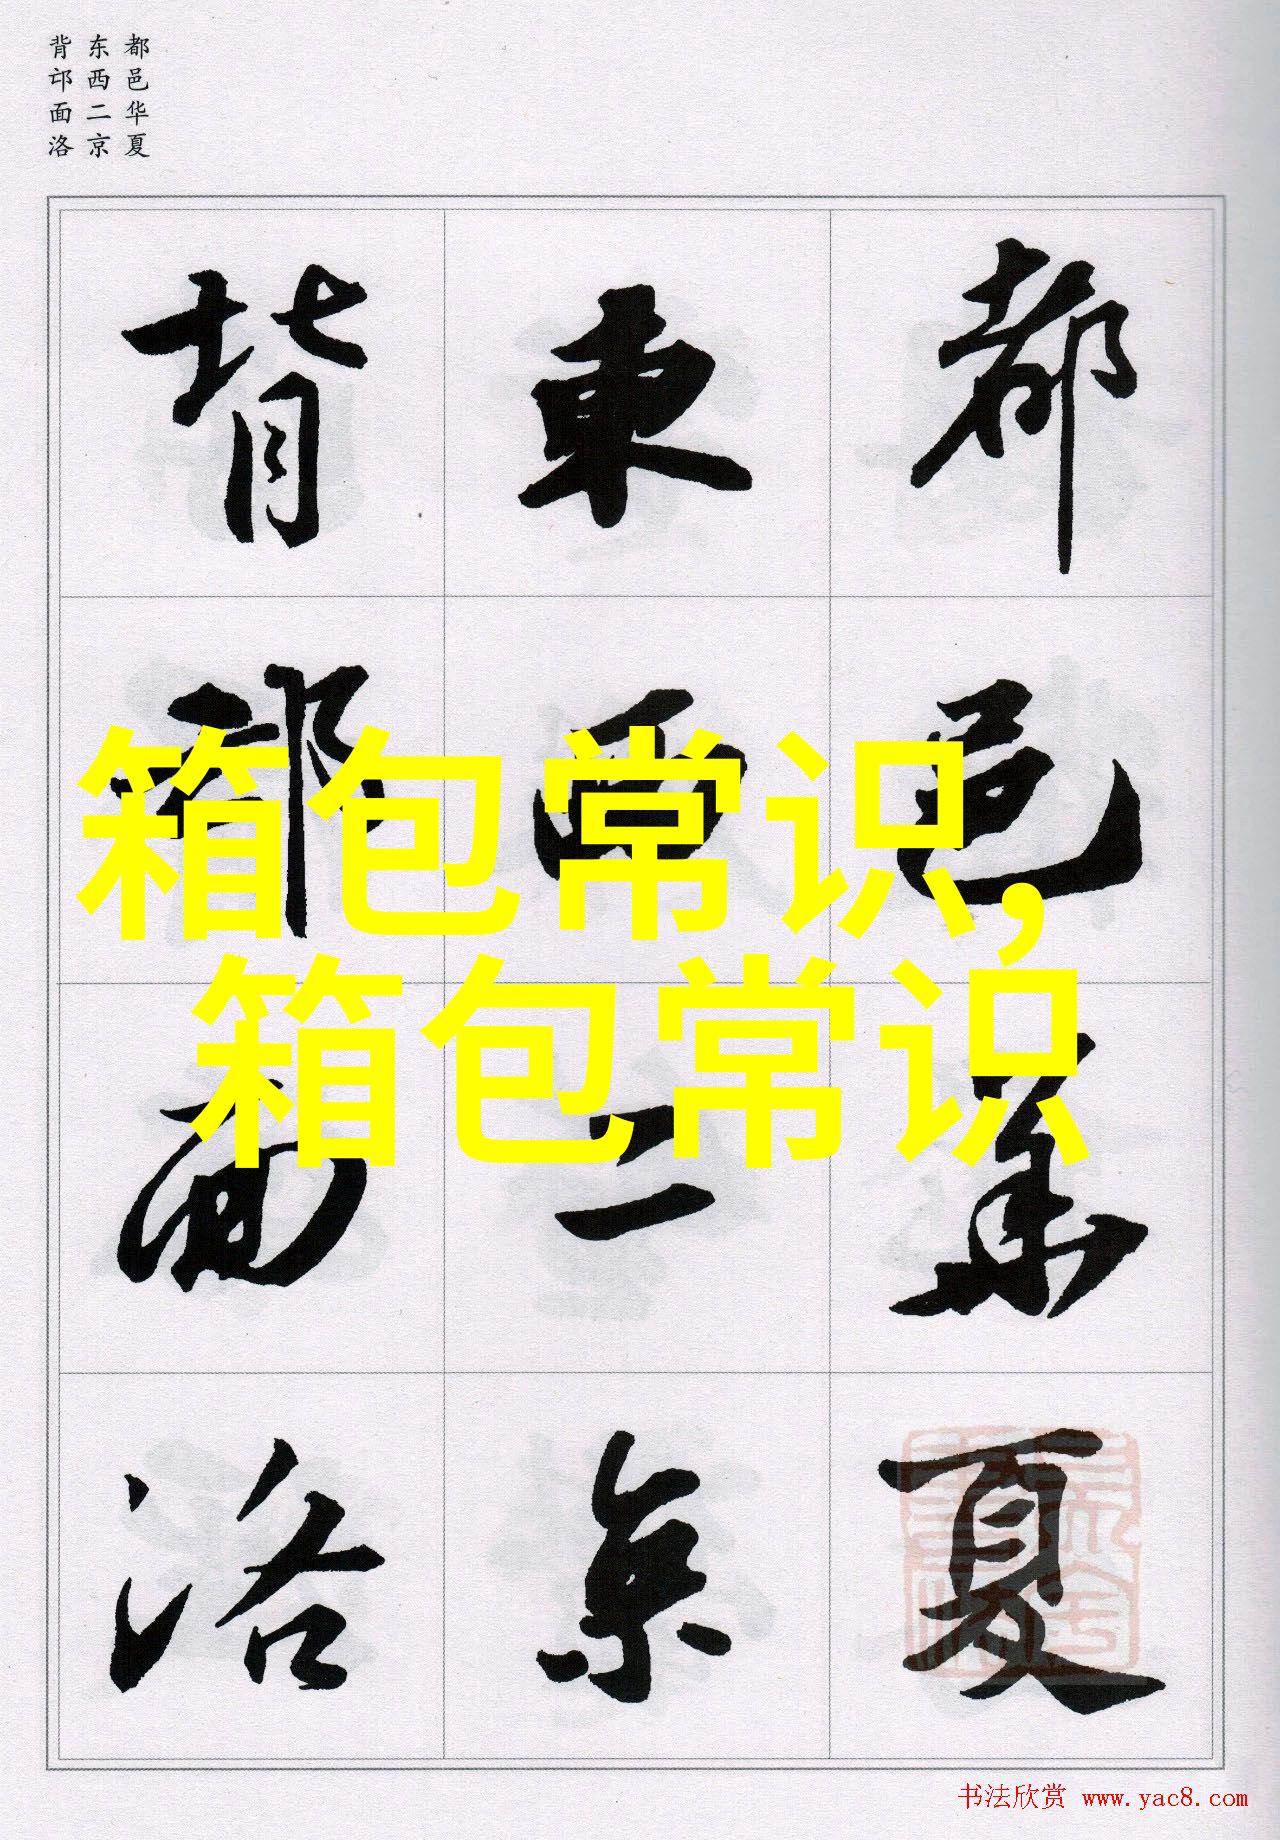 都邑华夏
东西二京
背邙面洛
都邑華夏
東西二京
背邙面洛
箱包常识,
箱包常识
书法欣赏 www.yac8.com